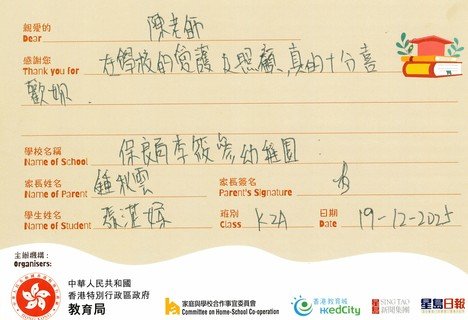 親愛的
Dear 陳老師
感謝您
Thank you for 在學校的愛護及照顧,真的十分喜
歡妳.
學校名稱
Name of School 保良局李筱參幼稚園
家長姓名 家長簽名
Name of Parent 鍾秋雲 Parent's Signature
學生姓名 班別 日期
Name of Student Class K2A Date 19-12-2025
主辦機構:
Organisers:
中華人民共和國
香港特別行政區政府
教育局
家庭與學校合作事宜委員會
Committee on Home-School Co-operation
香港教育城
HKedCity
星島 SING TAO
新聞集團
星島日報